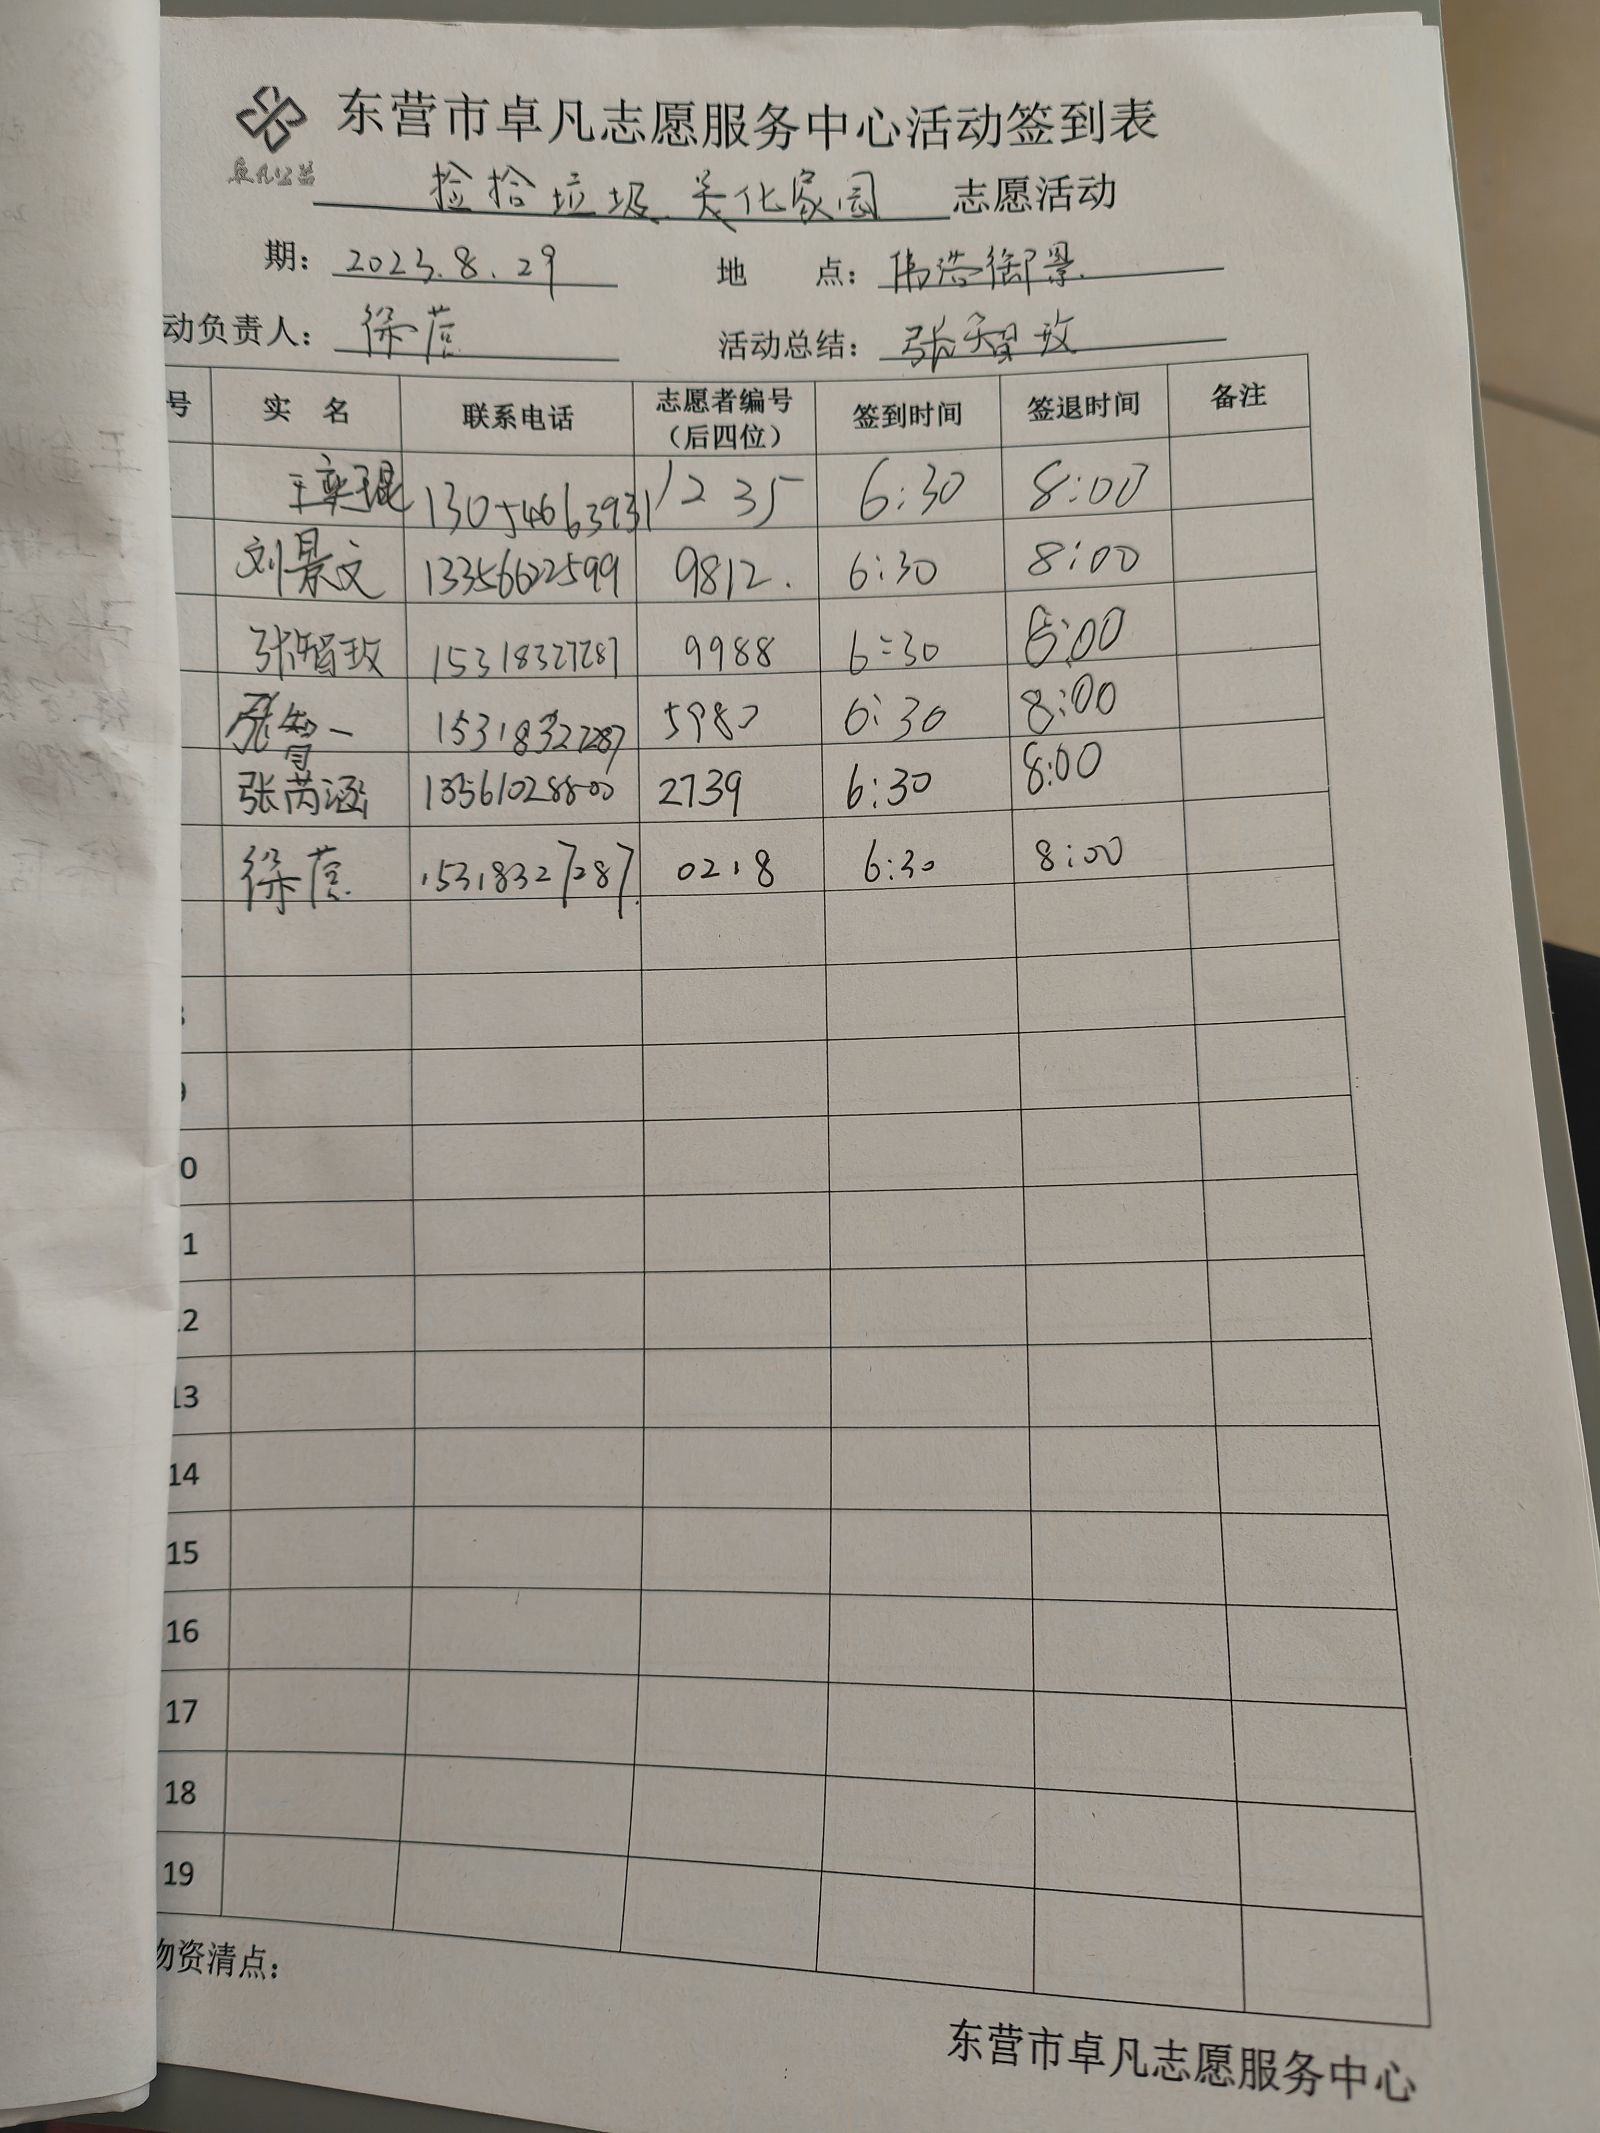 东营市卓凡志愿服务中心活动签到表
卓凡公益
捡拾垃圾 美化家园 志愿活动
期: 2023.8.29 地 点: 伟浩御景
动负责人: 徐蓓 活动总结: 张智玫
号 实 名 联系电话 志愿者编号(后四位) 签到时间 签退时间 备注
13054663931 1235 6:30 8:00
刘景文 13356622599 9812. 6:30 8:00
张智玫 15318327287 9988 6:30 8:00
张智一 15318327287 6:30 8:00
张芮涵 13561028800 2739 6:30 8:00
徐蓓 15318327287 0218 6:30 8:00
0
1
12
13
14
15
16
17
18
19
物资清点:
东营市卓凡志愿服务中心